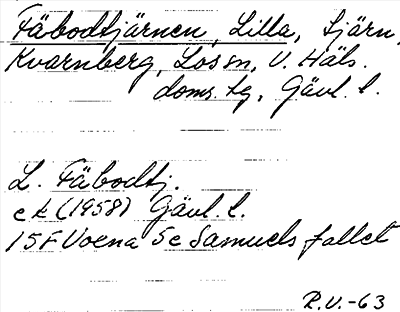 Fäbodtjärnen, Lilla, tjärn,
Kvarnberg, Los sn, V. Häls.
doms. tg, Gävl. l.
L. Fäbodtj.
ek (1958) Gävl. l.
15F Voxna 5e Samuels fallet
R.V.-63